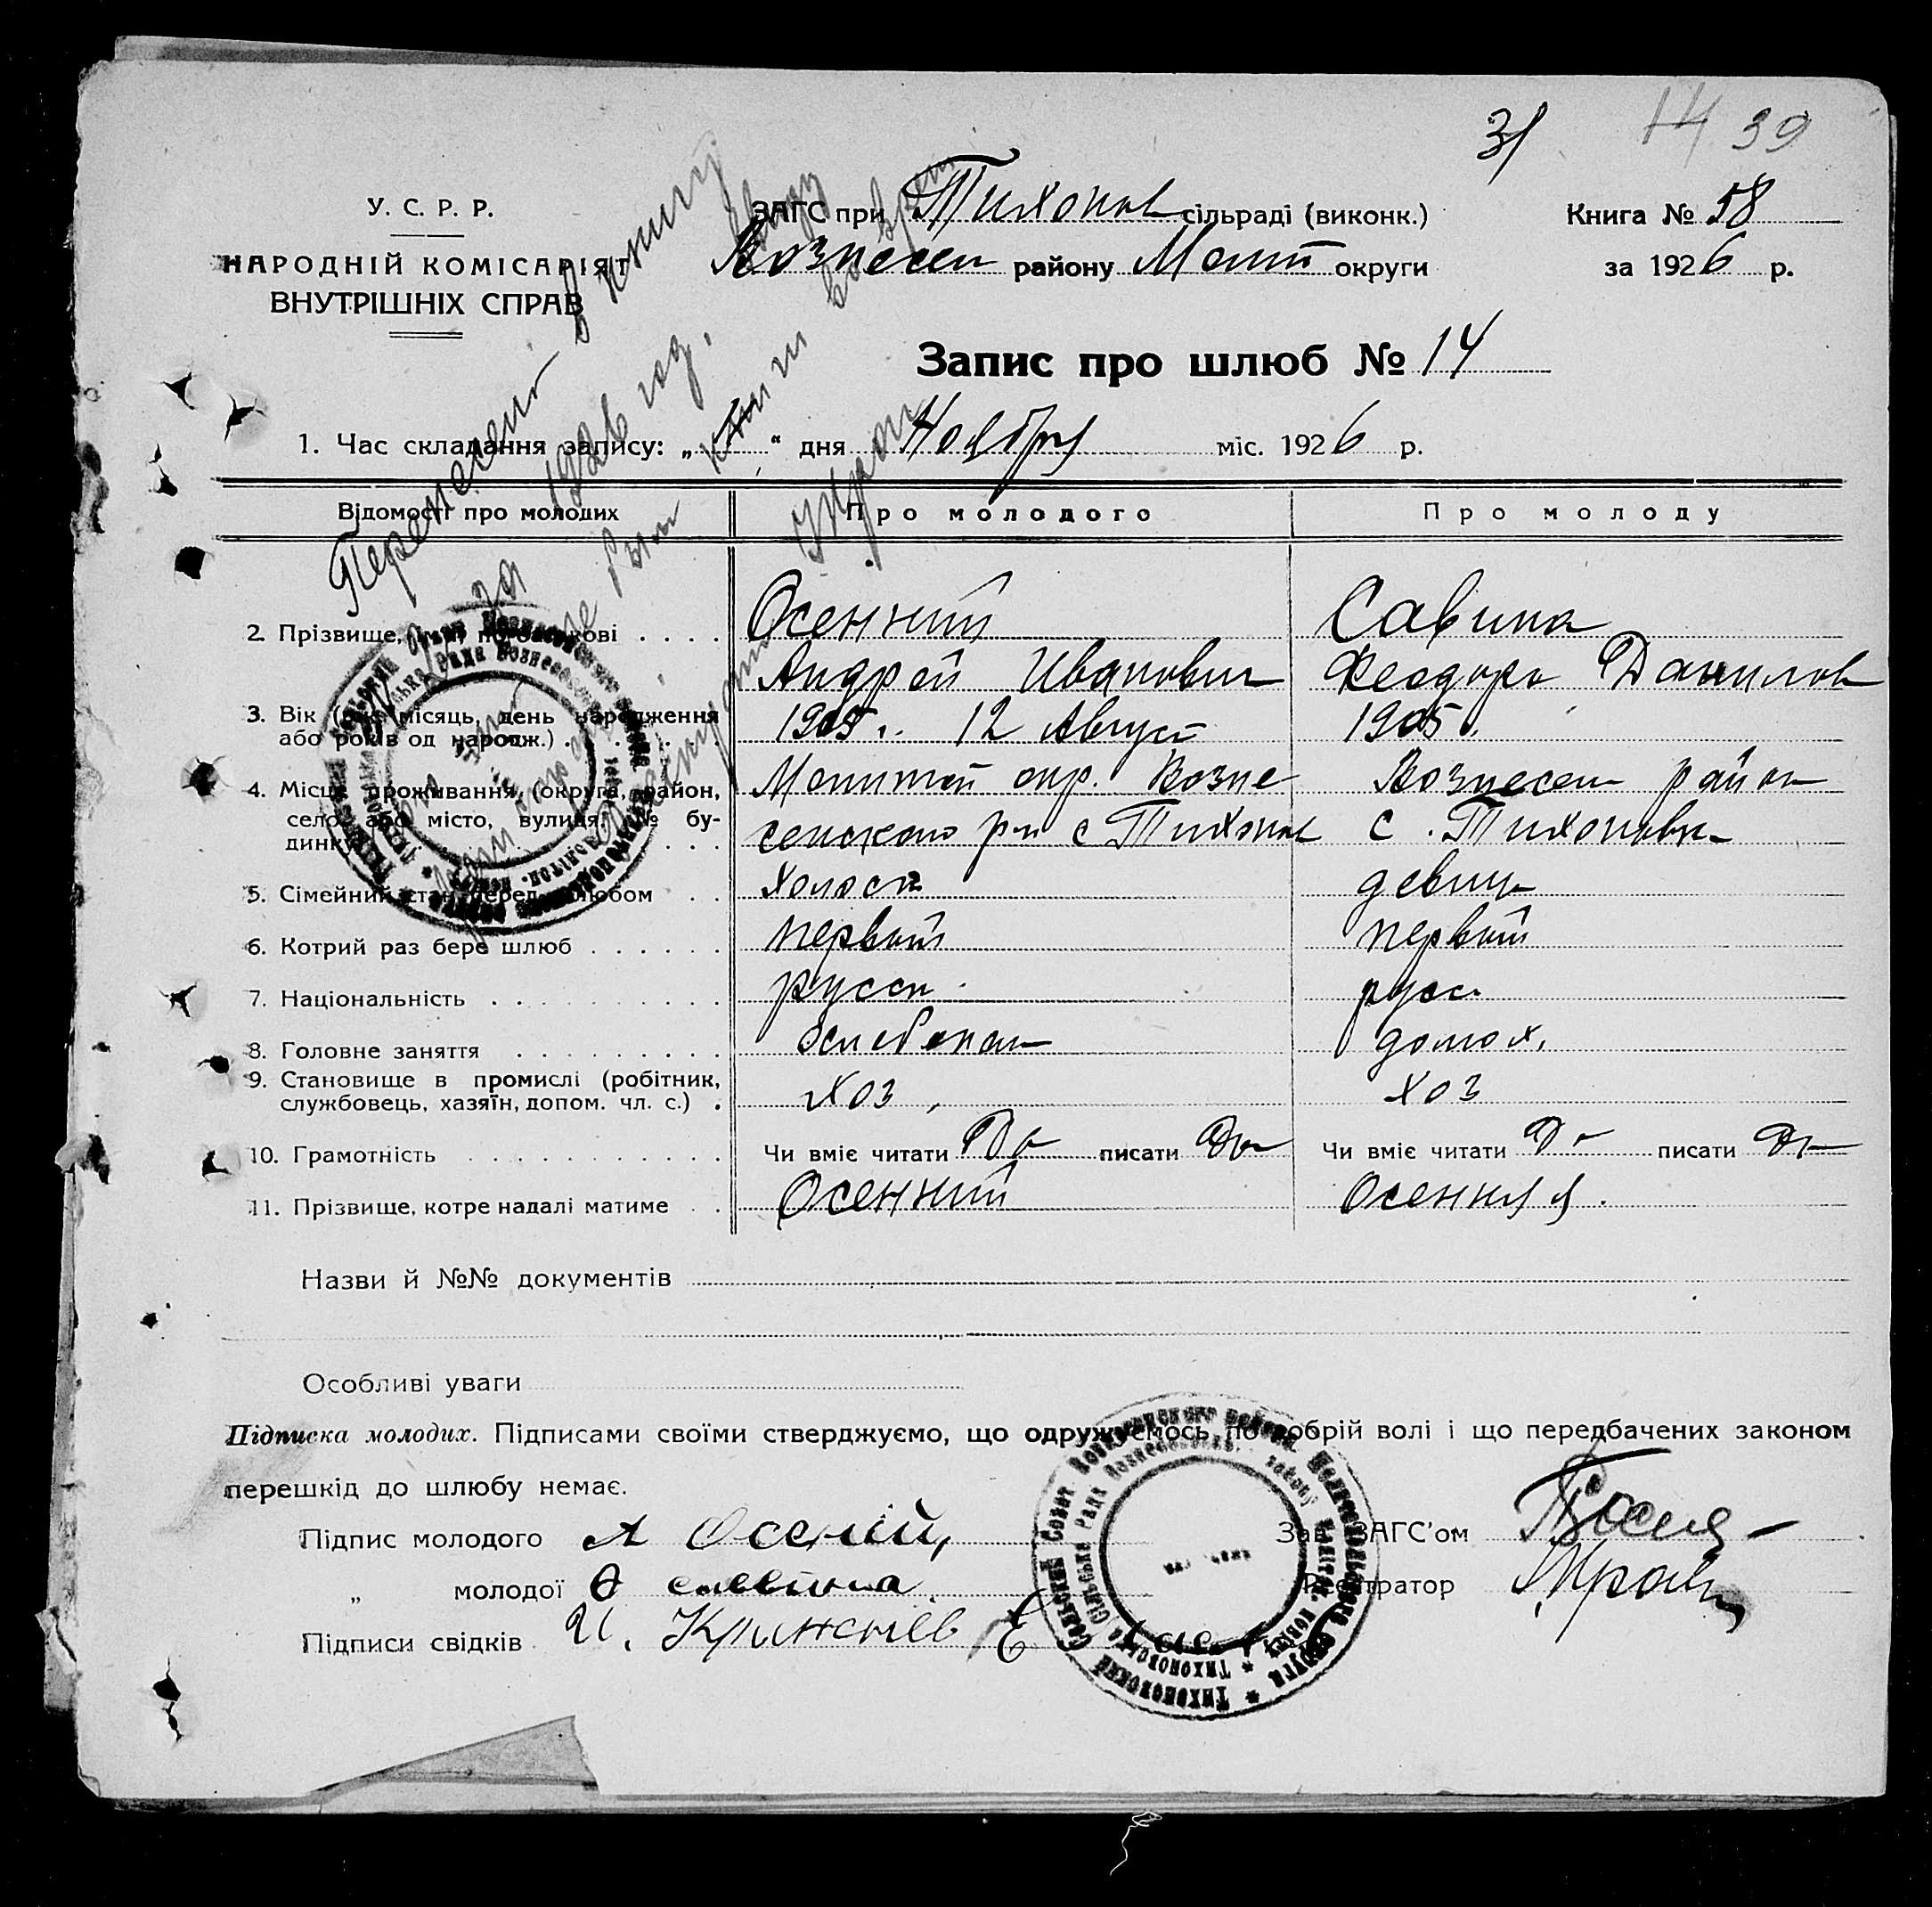 31 14 39
У. С. Р. Р.
НАРОДНІЙ КОМІСАРІЯТ
ВНУТРІШНІХ СПРАВ
ЗАГС при Тихонов сільраді (виконк.)
Вознесен району Мелит округи
Книга № 58
за 1926 р.
Запис про шлюб № 14
1. Час складання запису: „ “ дня Ноября міс. 1926 р.
Перенесені в книгу
за 1926 год.
Відомості про молодих Про молодого Про молоду
2. Прізвище, ім'я по батькові Осенний Савина
Андрей Иванович Феодора Данилов
3. Вік (рік, місяць, день народження 1905 г. 12 Август 1905 г.
або років од народж.)
4. Місце проживання, (округа, район, Мелитой окр. Возне Вознесен район
село або місто, вулиця, № бу- сенского р-н с Тихонов с. Тихоновка
динку)
5. Сімейний стан перед шлюбом холост девица
6. Котрий раз бере шлюб первый первый
7. Національність русск. русс.
8. Головне заняття домох.
9. Становище в промислі (робітник, хоз хоз
службовець, хазяїн, допом. чл. с.)
10. Грамотність Чи вміє читати Да писати Да Чи вміє читати Да писати Да
11. Прізвище, котре надалі матиме Осенний Осенняя.
Назви й №№ документів
Особливі уваги
Підписка молодих. Підписами своїми стверджуємо, що одружуємось по добрій волі і що передбачених законом
перешкід до шлюбу немає.
Підпис молодого А Осеній, Зав. ЗАГС'ом
„ молодої Ѳ савина Реєстратор
Підписи свідків И.